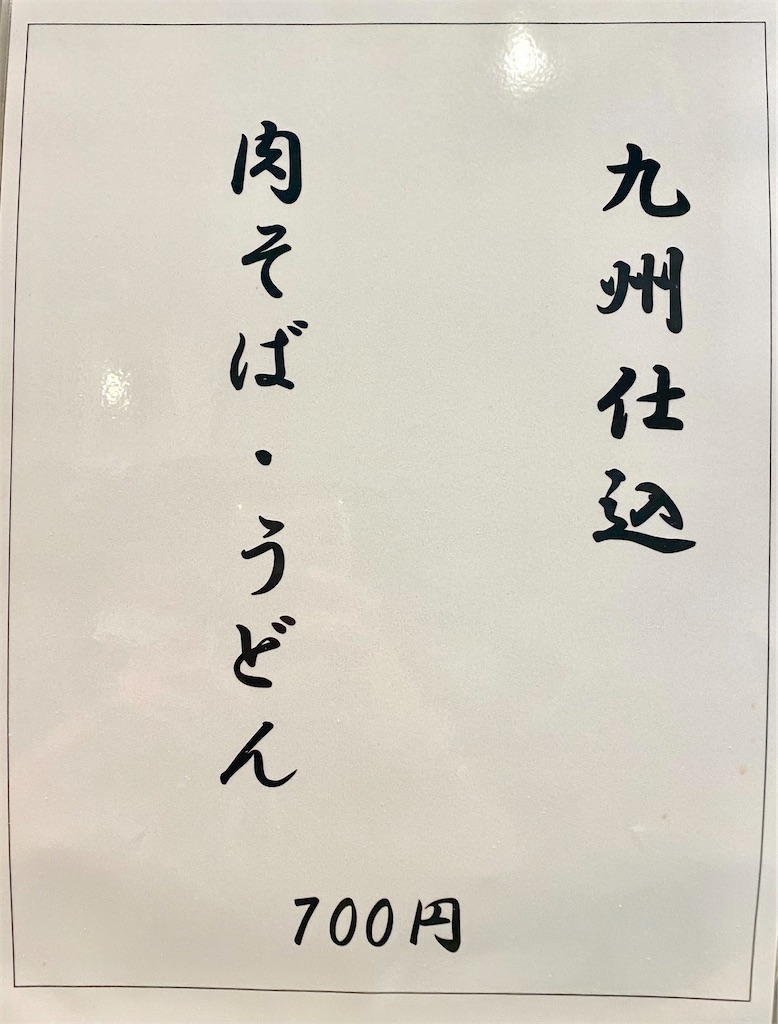 九州仕込
肉そば・うどん
700円